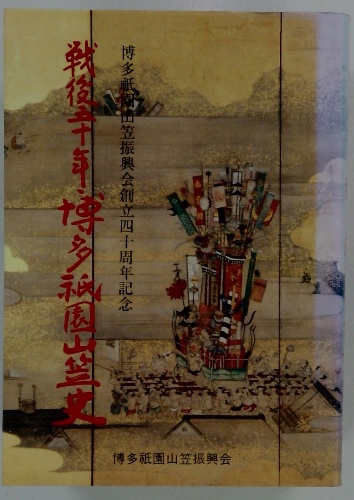 博多祇園山笠振興会創立四十周年記念
戦後五十年・博多祇園山笠史
博多祇園山笠振興会